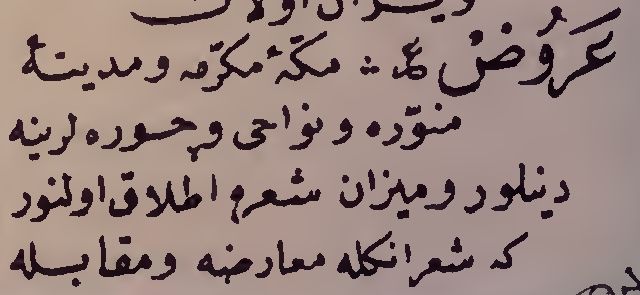 عَرُوضْ ع ∴ مكّهٔ مكرّمه و مدینهٔ
منوّره و نواحی و حوره لرینه
دینلور و میزان شعره اطلاق اولنور
که شعر انکله معارضه و مقابله